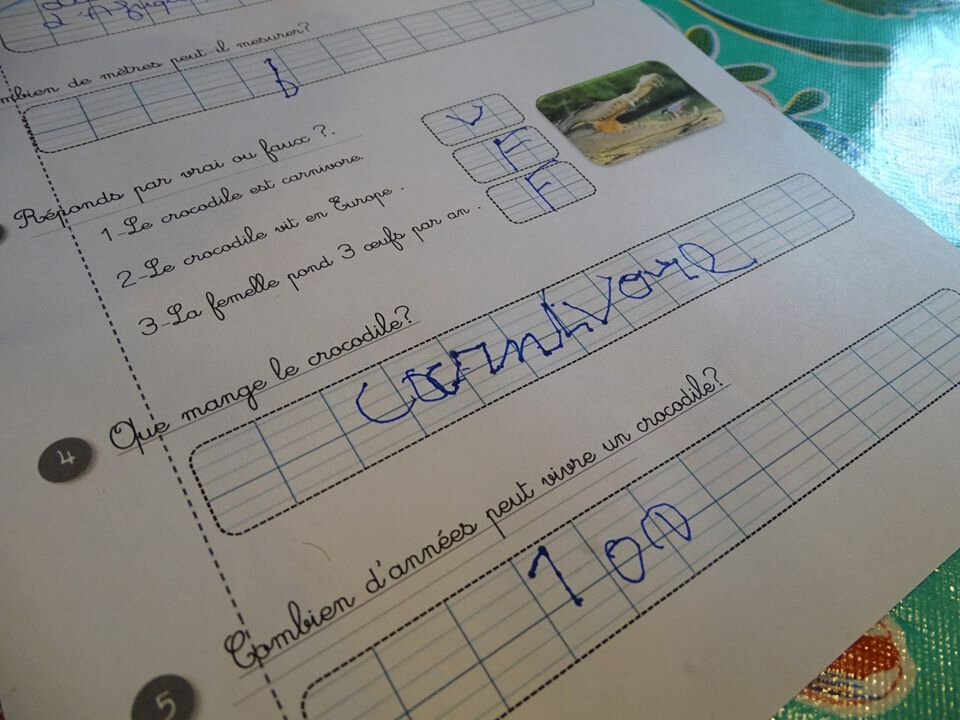 mbien de mètres peut il mesurer?
Réponds par vrai ou faux ?.
1-Le crocodile est carnivore.
V
2-Le crocodile vit en Europe.
F
3-La femelle pond 3 œufs par an.
F
4 Que mange le crocodile?
carnivore
5 Combien d'années peut vivre un crocodile?
100